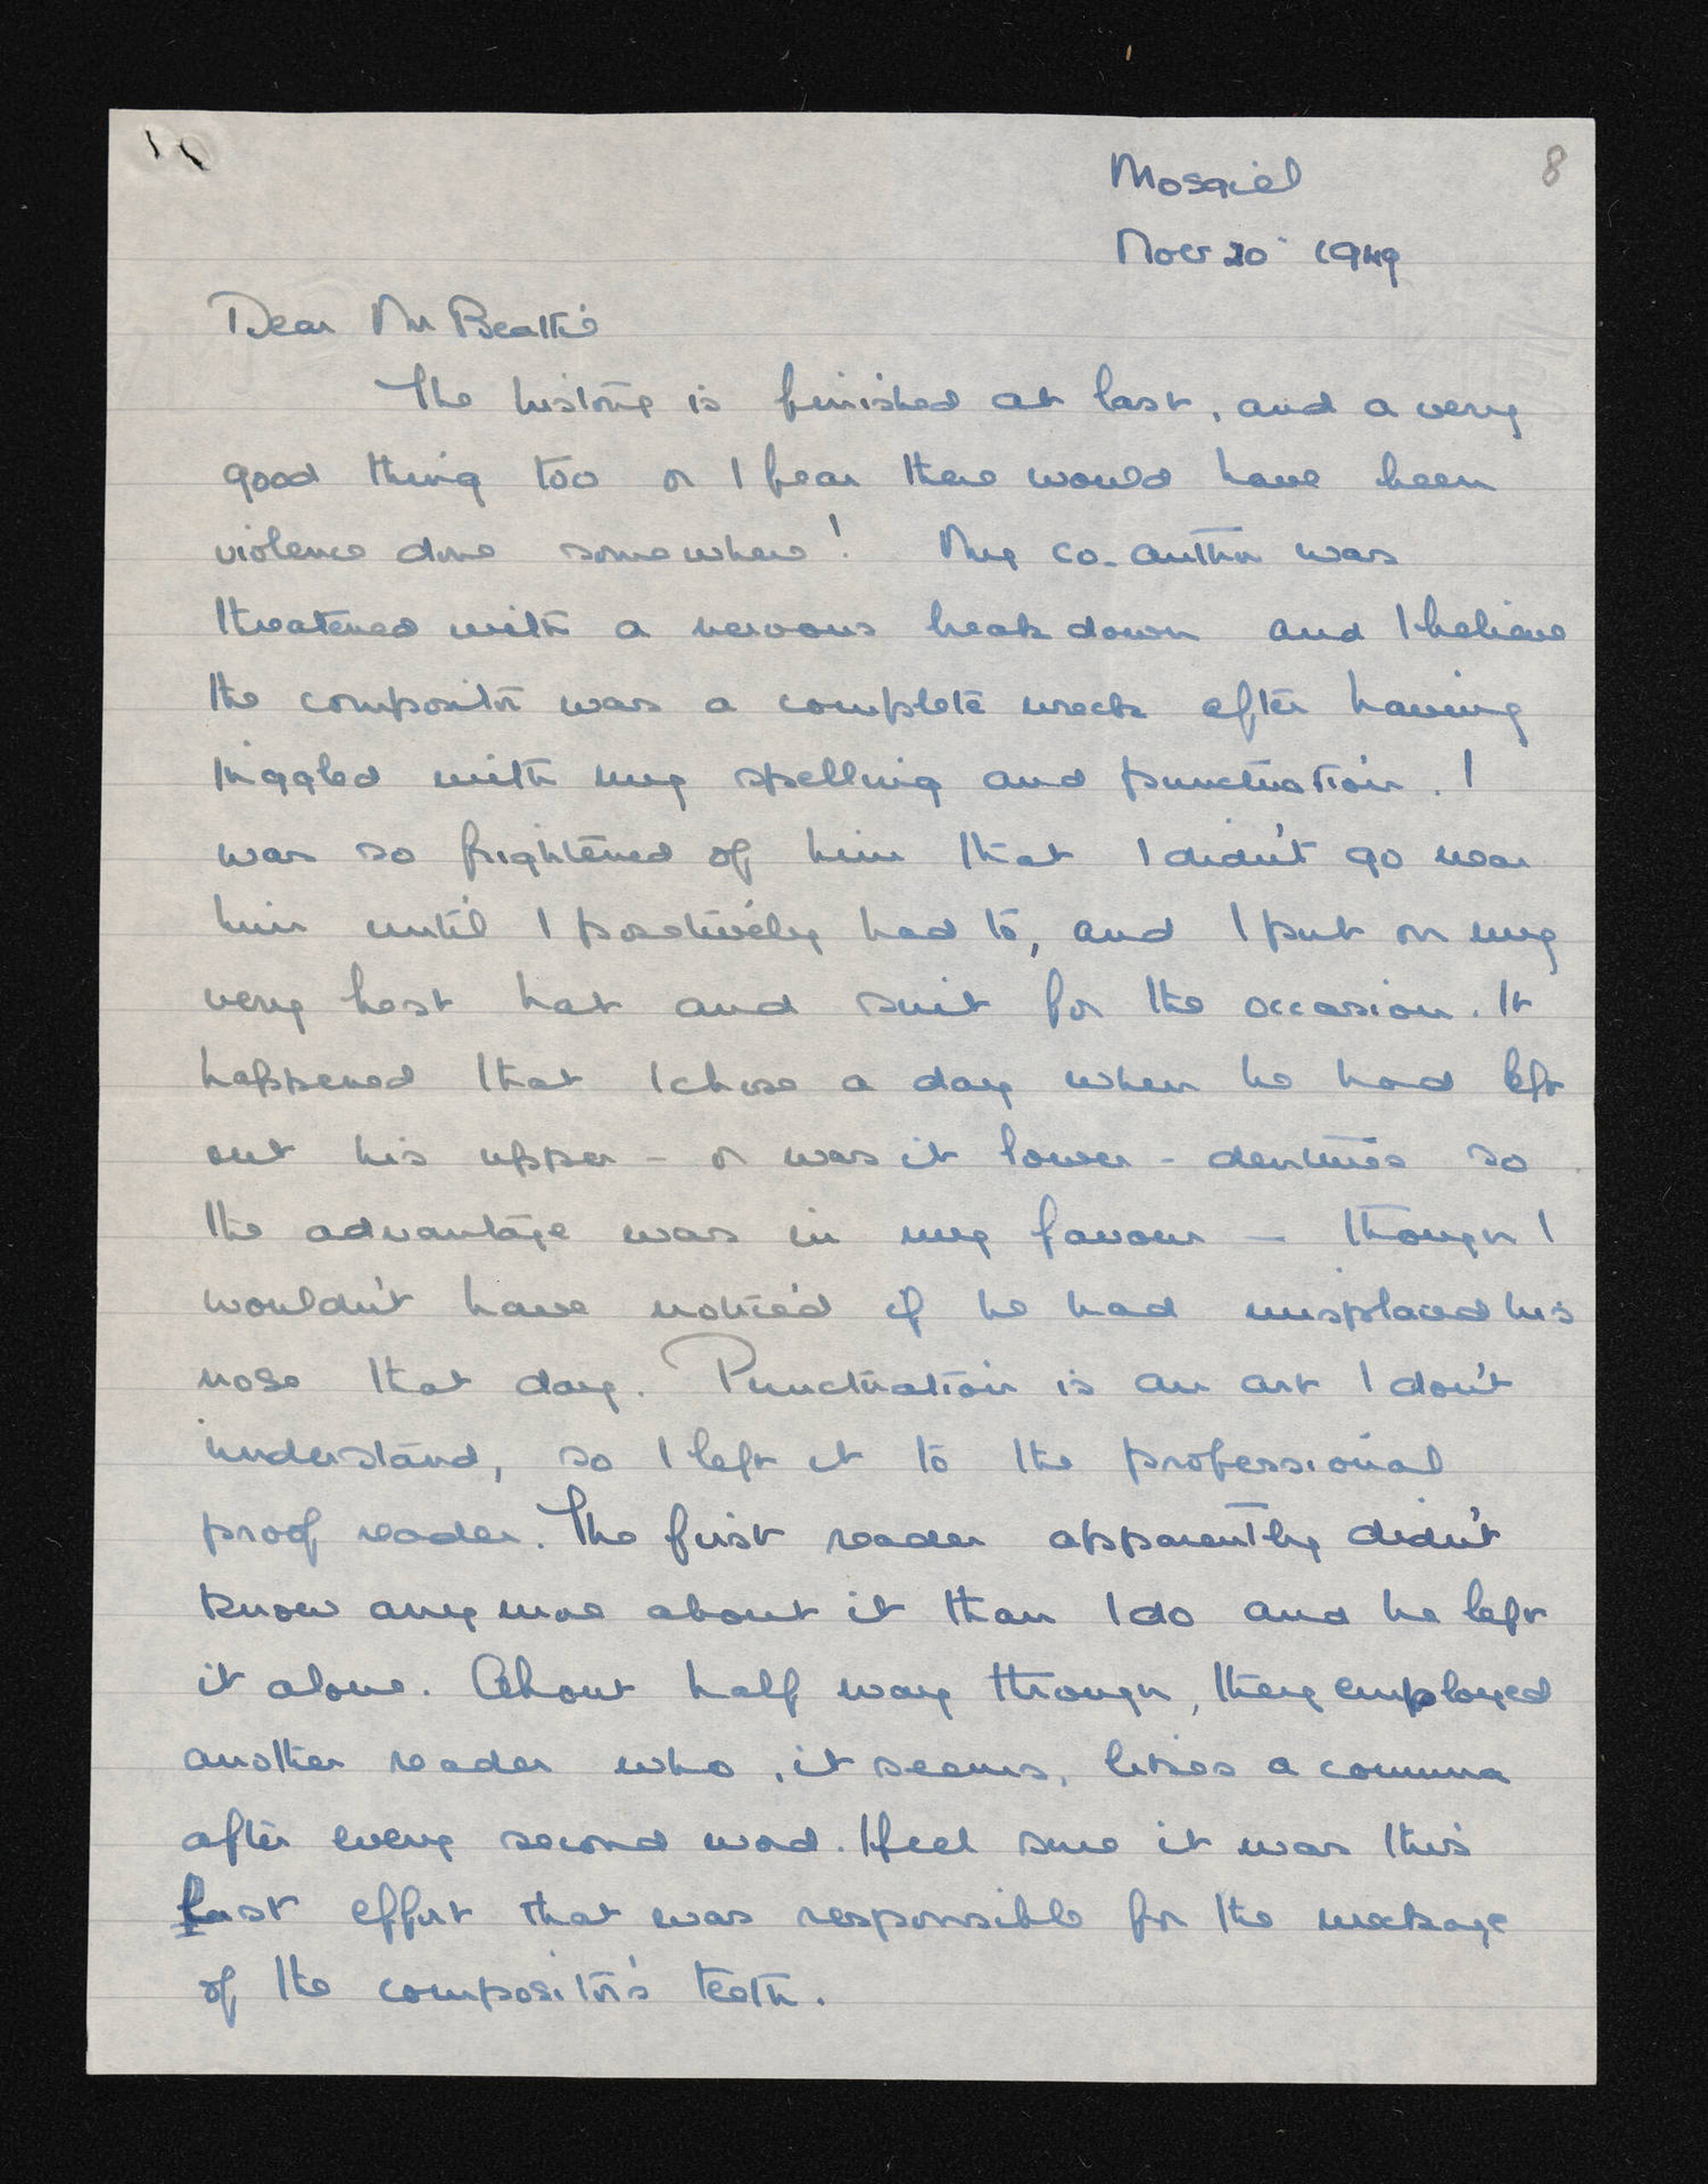 8
Mosgiel
Nov 20 1949
Dear Mr Beattie
The history is finished at last, and a very
good thing too or I fear there would have been
violence done somewhere! My co-author was
threatened with a nervous breakdown and I believe
the compositor was a complete wreck after having
niggled with my spelling and punctuation. I
was so frightened of him that I didn't go near
him until I positively had to, and I put on my
very best hat and suit for the occasion. It
happened that I chose a day when he had left
out his upper - or was it lower - dentures so
the advantage was in my favour - though I
wouldn't have noticed if he had misplaced his
nose that day. Punctuation is an art I don't
understand, so I left it to the professional
proof reader. The first reader apparently didn't
know any more about it than I do and he left
it alone. About half way through, they employed
another reader who, it seems, likes a comma
after every second word. I feel sure it was this
last effort that was responsible for the wreckage
of the compositor's teeth.